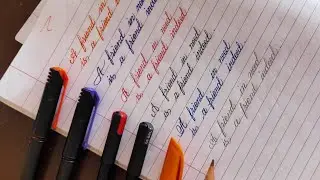 A friend in need
is a friend indeed.
A friend in need
is a friend indeed.
A friend in need
is a friend indeed.
A friend in need
is a friend indeed.
A friend in need
is a friend indeed.
A friend in need
is a friend indeed.